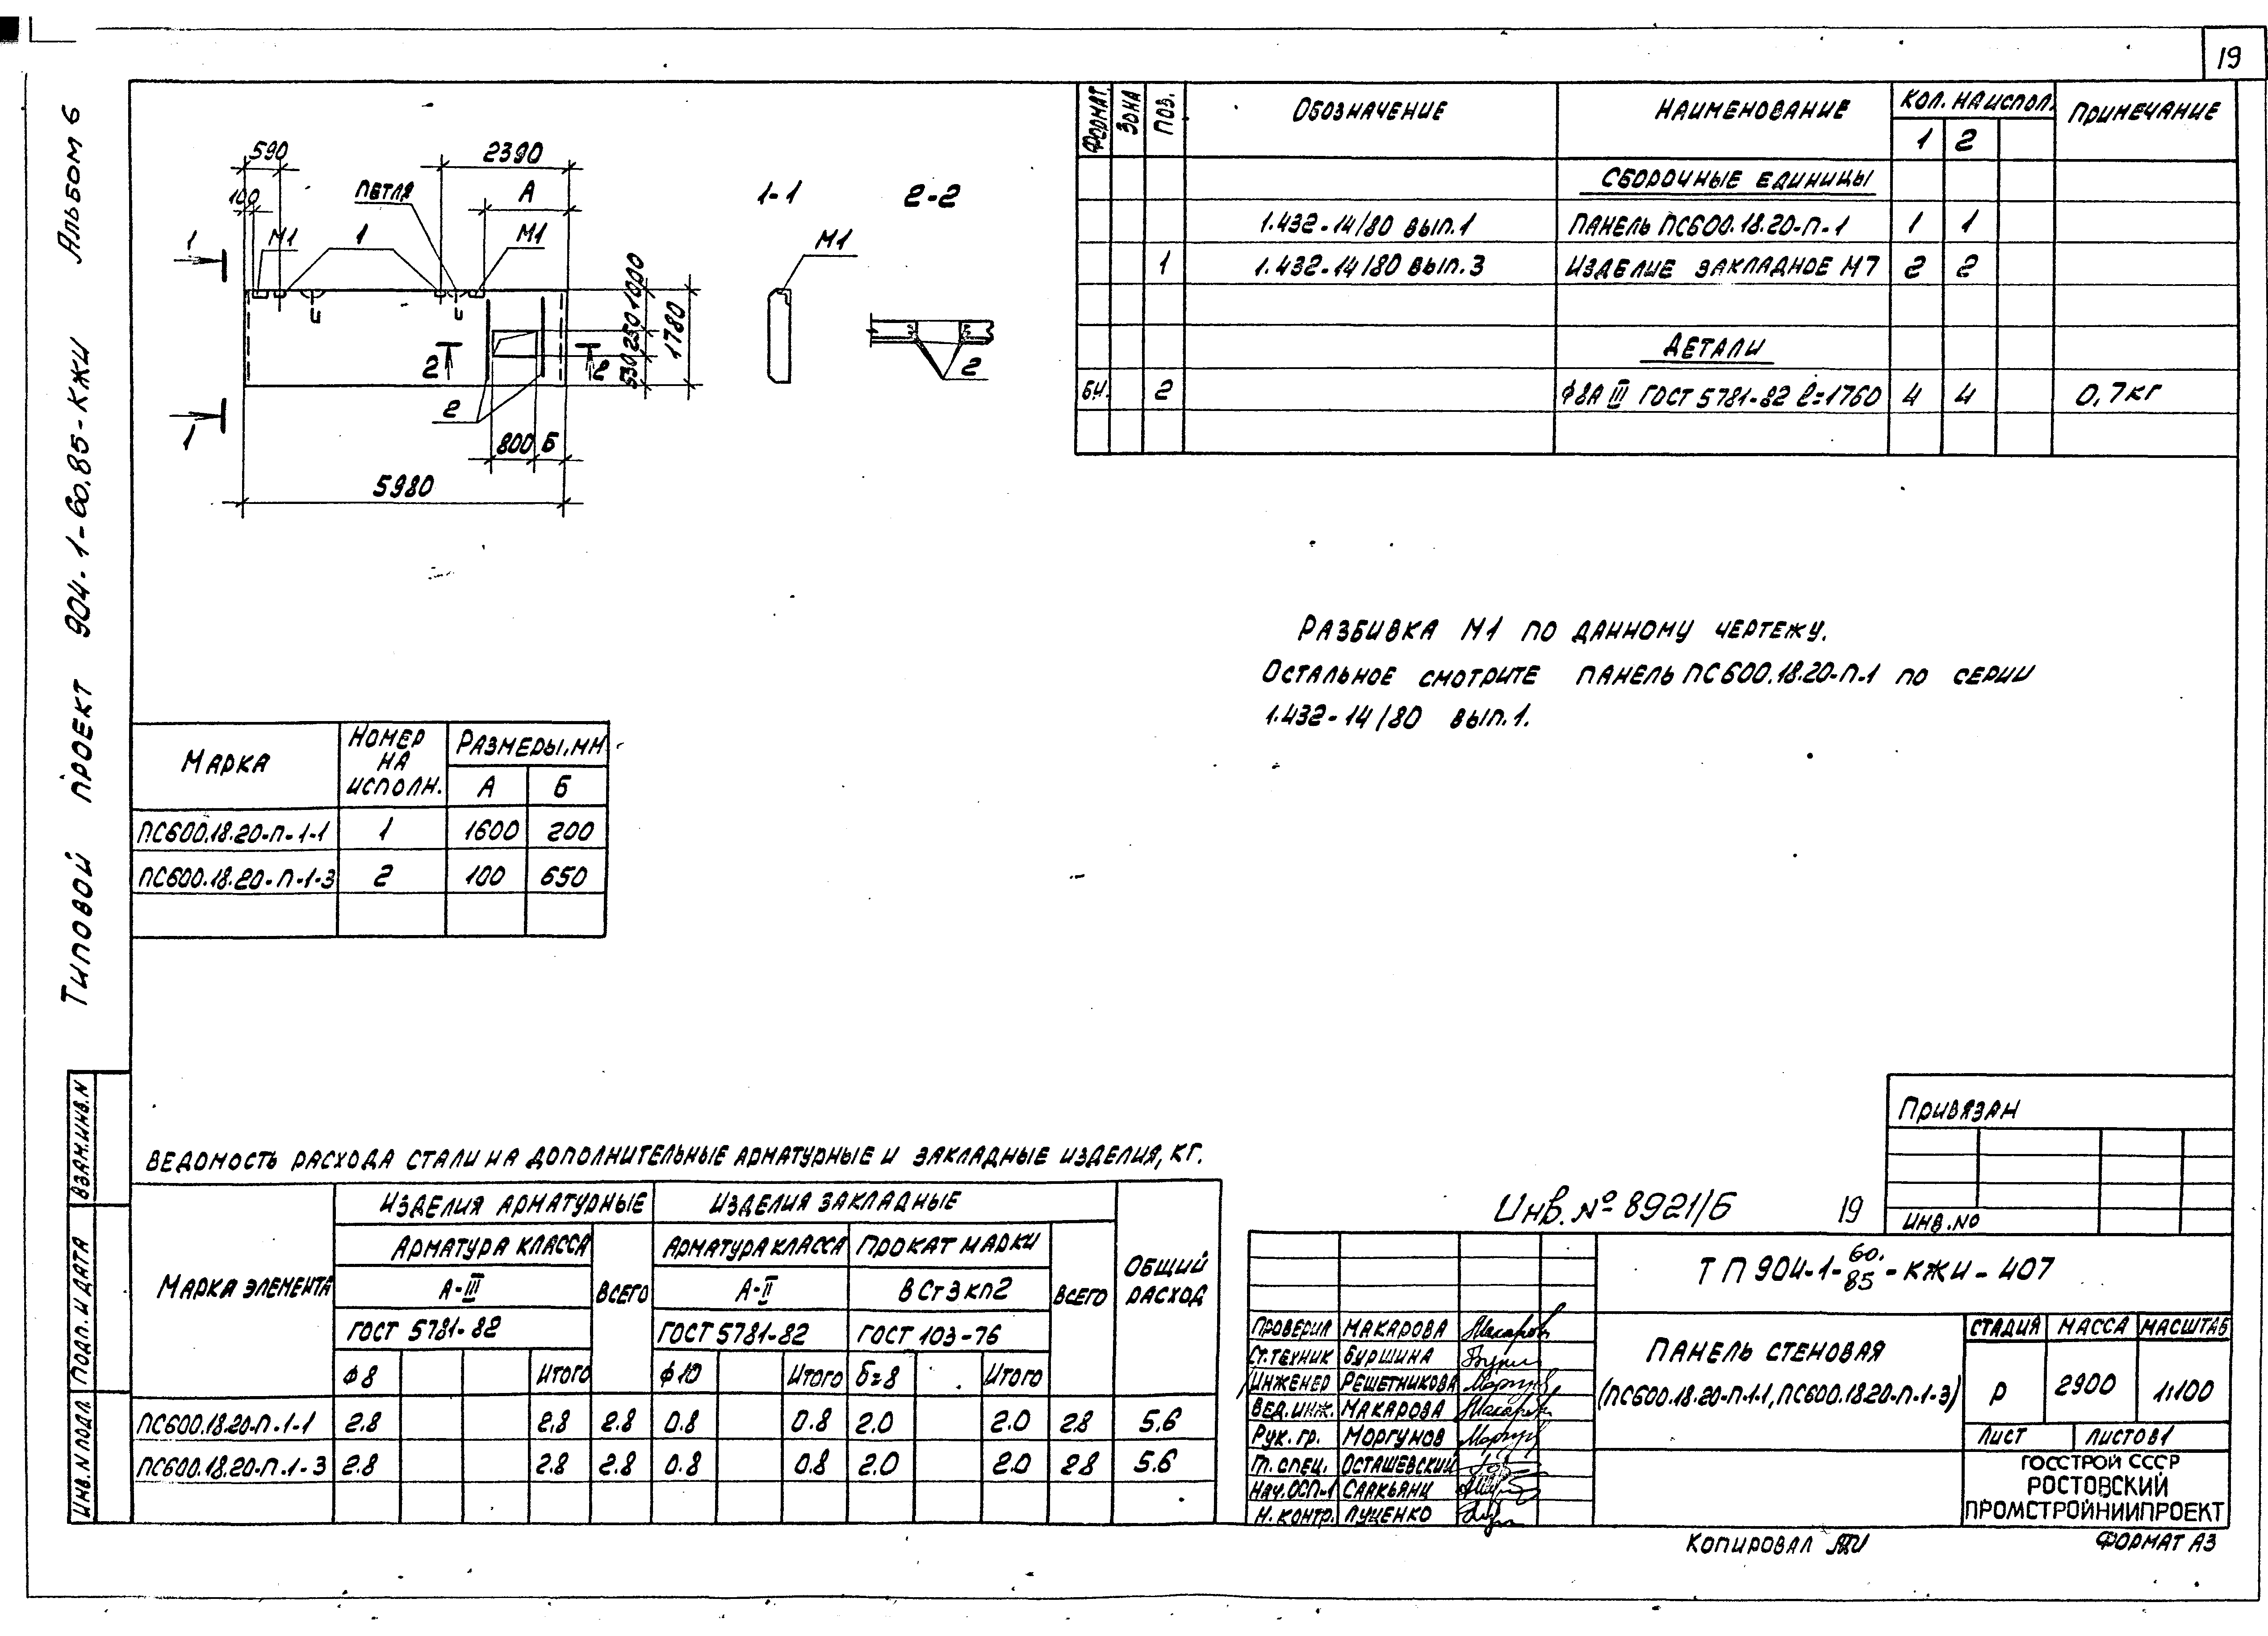 19
Типовой проект 904-1-60.85-КЖИ Альбом 6
590
2390
100
ПЕТЛЯ
А
М1
1
М1
1
1
2
2
2
800
Б
5980
1000
250
530
1780
1-1
М1
2-2
2
ФОРМАТ
ЗОНА
ПОЗ.
ОБОЗНАЧЕНИЕ
НАИМЕНОВАНИЕ
КОЛ. НА ИСПОЛ.
ПРИМЕЧАНИЕ
1 2
СБОРОЧНЫЕ ЕДИНИЦЫ
1.432-14/80 ВЫП.1 ПАНЕЛЬ ПС600.18.20-П-1 1 1
1 1.432-14/80 ВЫП.3 ИЗДЕЛИЕ ЗАКЛАДНОЕ М7 2 2
ДЕТАЛИ
БЧ. 2 Ф8А III ГОСТ 5781-82 ℓ=1760 4 4 0,7 КГ
РАЗБИВКА М1 ПО ДАННОМУ ЧЕРТЕЖУ.
ОСТАЛЬНОЕ СМОТРИТЕ ПАНЕЛЬ ПС600.18.20-П-1 ПО СЕРИИ
1.432-14/80 ВЫП.1.
МАРКА
НОМЕР НА ИСПОЛН.
РАЗМЕРЫ, ММ
А Б
ПС600.18.20-П-1-1 1 1600 200
ПС600.18.20-П-1-3 2 100 650
ВЕДОМОСТЬ РАСХОДА СТАЛИ НА ДОПОЛНИТЕЛЬНЫЕ АРМАТУРНЫЕ И ЗАКЛАДНЫЕ ИЗДЕЛИЯ, КГ.
МАРКА ЭЛЕМЕНТА
ИЗДЕЛИЯ АРМАТУРНЫЕ ИЗДЕЛИЯ ЗАКЛАДНЫЕ
ОБЩИЙ РАСХОД
АРМАТУРА КЛАССА ВСЕГО АРМАТУРА КЛАССА ПРОКАТ МАРКИ ВСЕГО
А-III А-II ВСт3кп2
ГОСТ 5781-82 ГОСТ 5781-82 ГОСТ 103-76
Ф8 ИТОГО Ф10 ИТОГО δ=8 ИТОГО
ПС600.18.20-П-1-1 2.8 2.8 2.8 0.8 0.8 2.0 2.0 2.8 5.6
ПС600.18.20-П-1-3 2.8 2.8 2.8 0.8 0.8 2.0 2.0 2.8 5.6
ВЗАМ.ИНВ.N
ПОДП. И ДАТА
ИНВ.N ПОДЛ.
Инв.№ 8921/6 19
ПРИВЯЗАН
ИНВ.NО
ТП 904-1-60./85-КЖИ-407
ПРОВЕРИЛ МАКАРОВА
СТ.ТЕХНИК БУРШИНА
ИНЖЕНЕР РЕШЕТНИКОВА
ВЕД.ИНЖ. МАКАРОВА
РУК. ГР. МОРГУНОВ
ГЛ. СПЕЦ. ОСТАШЕВСКИЙ
НАЧ.ОСП-1 СААКЬЯНЦ
Н. КОНТР. ЛУЦЕНКО
ПАНЕЛЬ СТЕНОВАЯ
(ПС600.18.20-П-1-1, ПС600.18.20-П-1-3)
СТАДИЯ МАССА МАСШТАБ
Р 2900 1:100
ЛИСТ ЛИСТОВ 1
ГОССТРОЙ СССР
РОСТОВСКИЙ
ПРОМСТРОЙНИИПРОЕКТ
КОПИРОВАЛ
ФОРМАТ А3